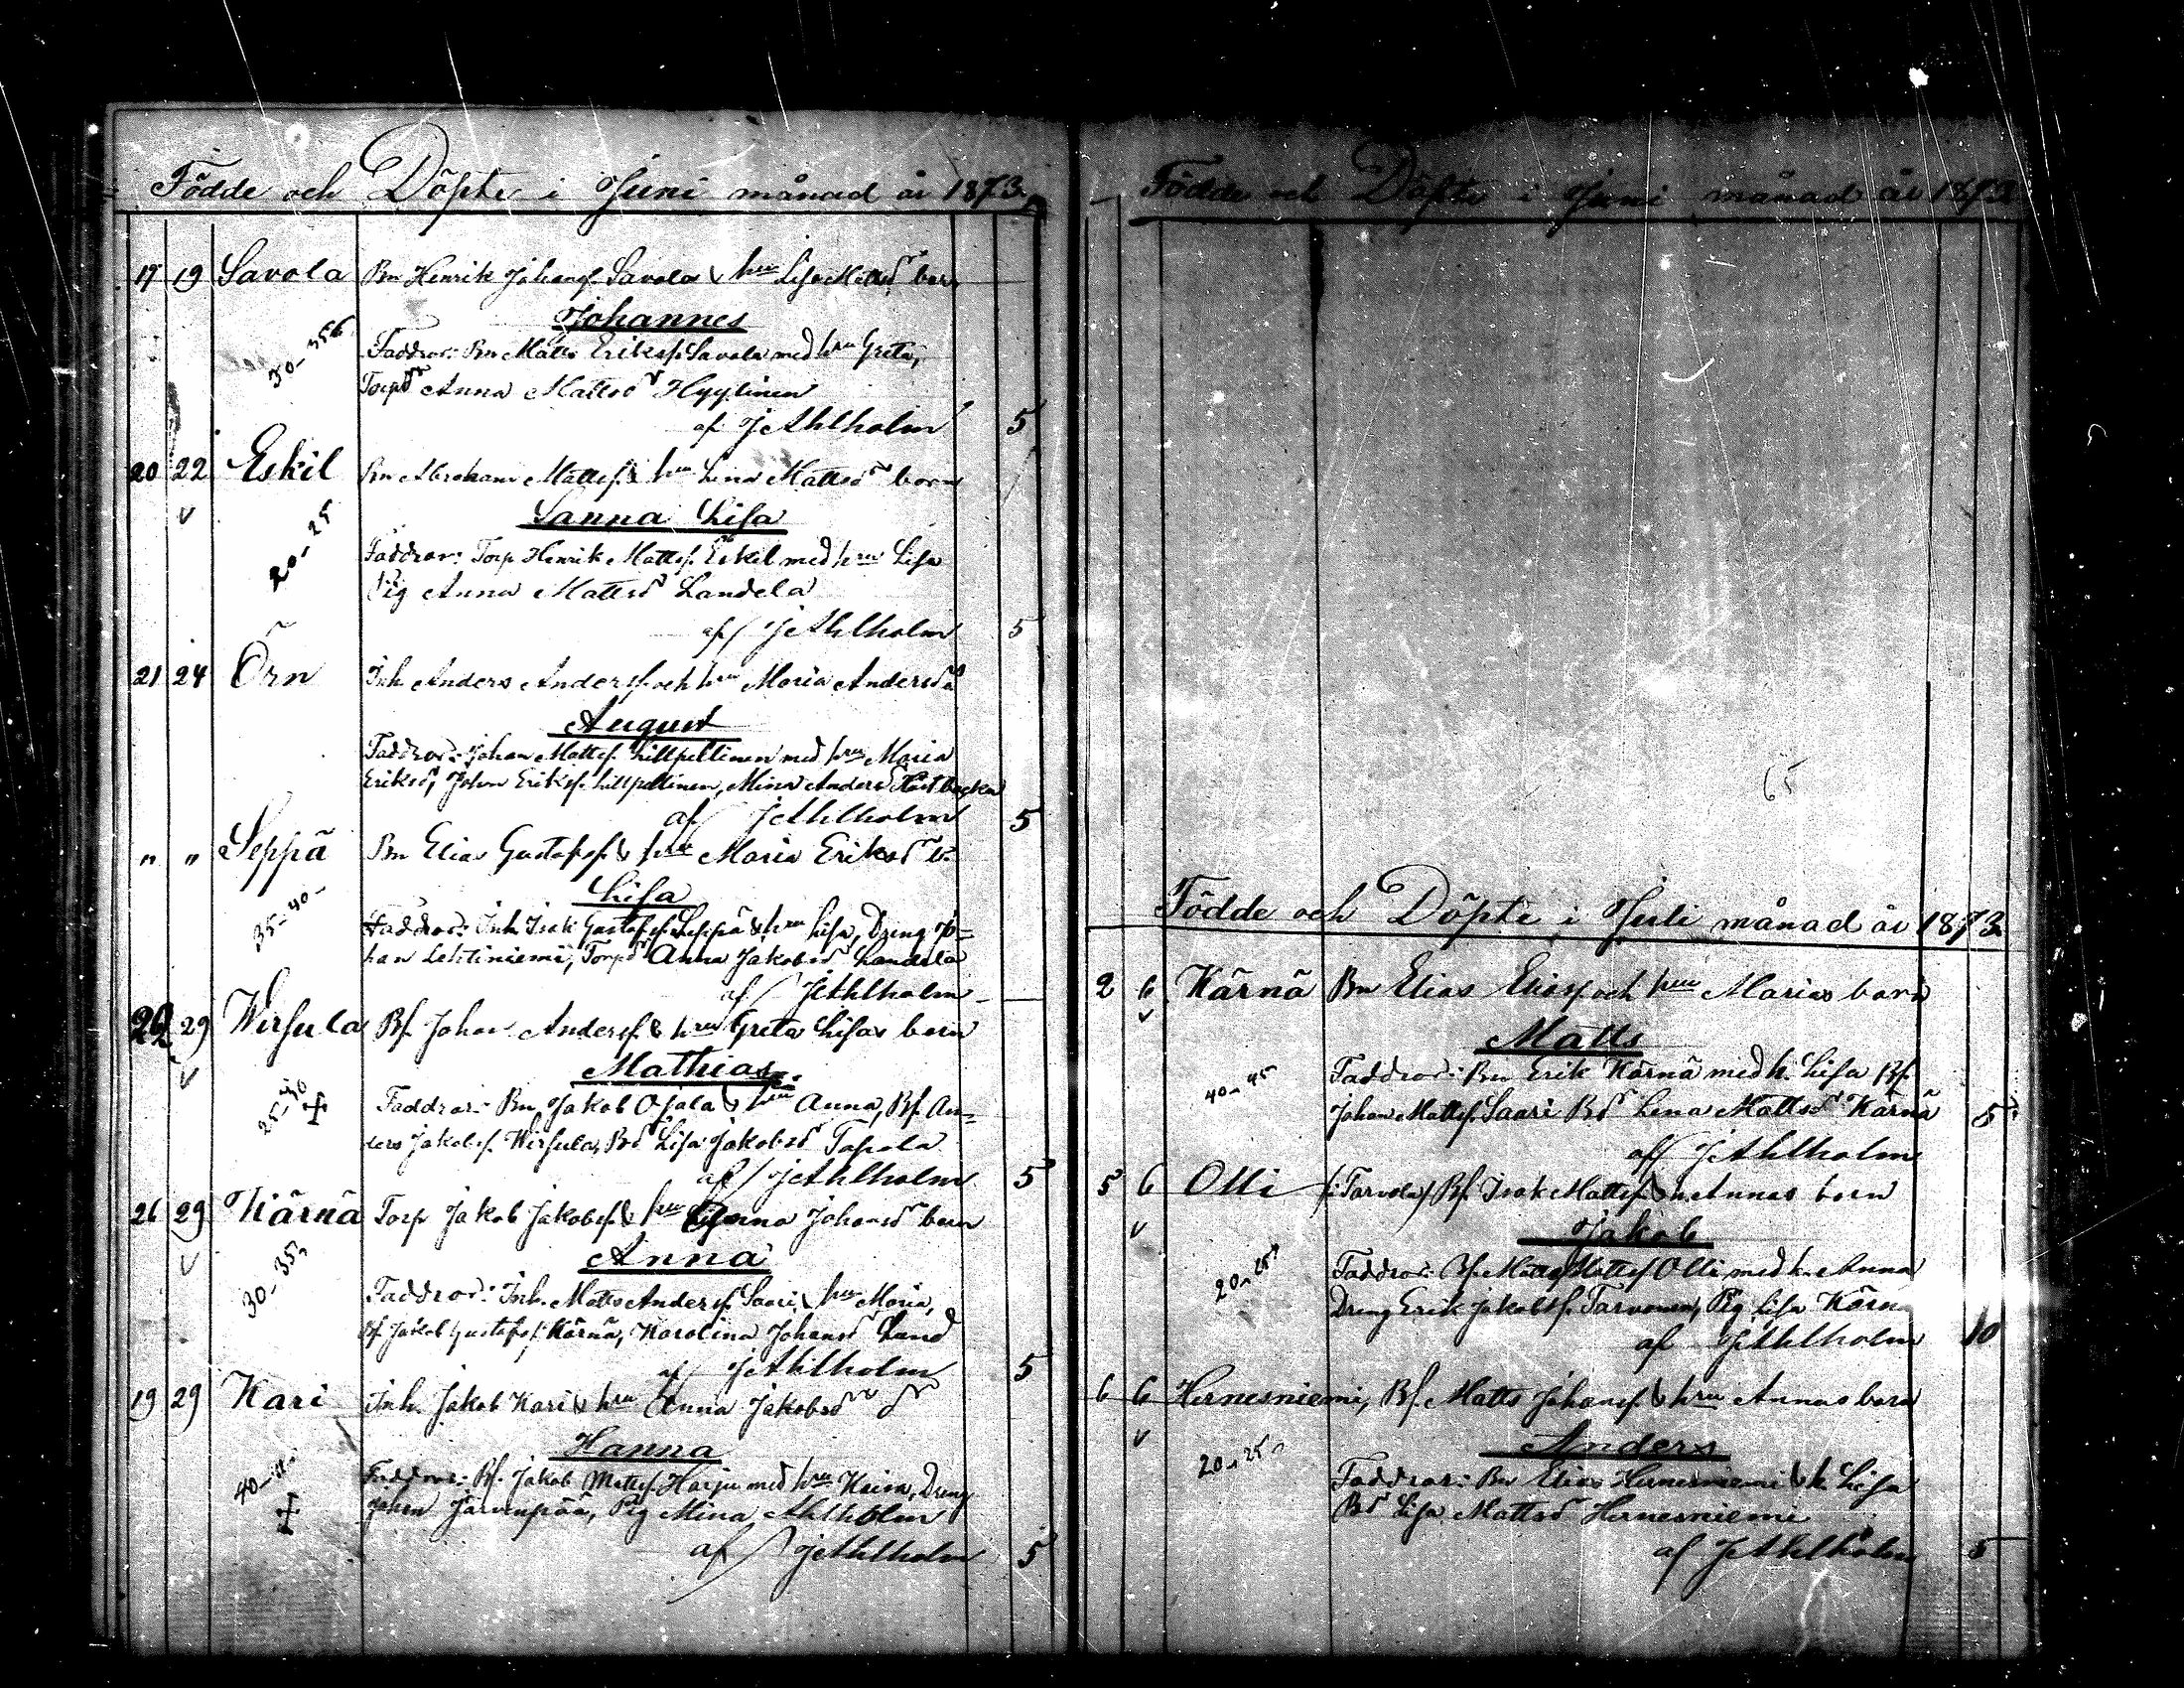 Födde och Döpte i Juni månad år 1873.
17 19 Savola Bn Henrik Johansf. Savola & hru Lisa Mattsdr barn
Johannes
30-35
Faddrar: Bn Matts Eriksf. Savola med hru Greta,
Torpdr Anna Mattsdr Hyytinen
af J Ahlholm 5
20 22 Eskil Bn Abraham Mattsf. & hru Lena Mattsdr barn
Sanna Lisa
20-25
Faddrar: Torp Henrik Mattsf. Eskil med hru Lisa
Pig Anna Mattsdr Landela
af J Ahlholm 5
21 24 Örn Inh Anders Andersf. och hru Maria Andersdr
August
Faddrar: Johan Mattsf. Lillpeltinen med hru Maria
Eriksdr, Johan Eriksf. Lillpeltinen, Mina Anders
af J Ahlholm 5
" " Seppä Bn Elias Gustafsf. & hru Maria Eriksdr b.
Lisa
35-40
Faddrar: Inh Isak Gustafsf. Seppä & hru Lisa, Dreng Jo=
han Lehtiniemi, Torpdr Anna Jakobsdr Landela
af J Ahlholm
29 Wirsula Bf. Johan Andersf. & hru Greta Lisas barn
Mathias
25-30
Faddrar: Bn Jakob Ojala & hru Anna, Bf. An=
ders Jakobsf. Wirsula, Bdr Lisa Jakobsdr Tapola
af J Ahlholm 5
26 29 Kärnä Torp Jakob Jakobsf. & hru Johansdr barn
Anna
30-35
Faddrar: Inh. Matts Andersf. Saari & hru Maria,
Bf Jakob Gustafsf. Kärnä, Karolina Johansdr Lund
af J Ahlholm 5
19 29 Kari Inh. Jakob Kari & hru Anna Jakobsdr dr
Hanna
40-
Faddrar: Bf. Jakob Mattsf. Harju med hru Kaisa, Dreng
Johan Järvenpää, Pig Mina Ahlholm
af J Ahlholm 5
Födde och Döpte i Juni månad år 1873
65
Födde och Döpte i Juli månad år 1873.
2 6 Kärnä Bn Elias Eliasf och hru Marias barn
Matts
40-45
Faddrar: Bn Erik Kärnä med h. Lisa Bf.
Johan Mattsf. Saari Bdr Lena Mattsdr Kärnä 5
af J Ahlholm
5 6 Olli Bf. Isak Mattsf. & h. Annas barn
Jakob
20-25
Faddrar: Bf. Matts Mattsf Olli med h. Anna
Dreng Erik Jakobsf. Tarvonen, Pig Lisa Kärnä
af J Ahlholm 10
6 6 Hernesniemi, Bf. Matts Johansf. & hru Annas barn
Anders
20-25
Faddrar: Bn Elias Hernesniemi & h. Lisa
Bdr Lisa Mattsdr Hernesniemi
af J Ahlholm 5